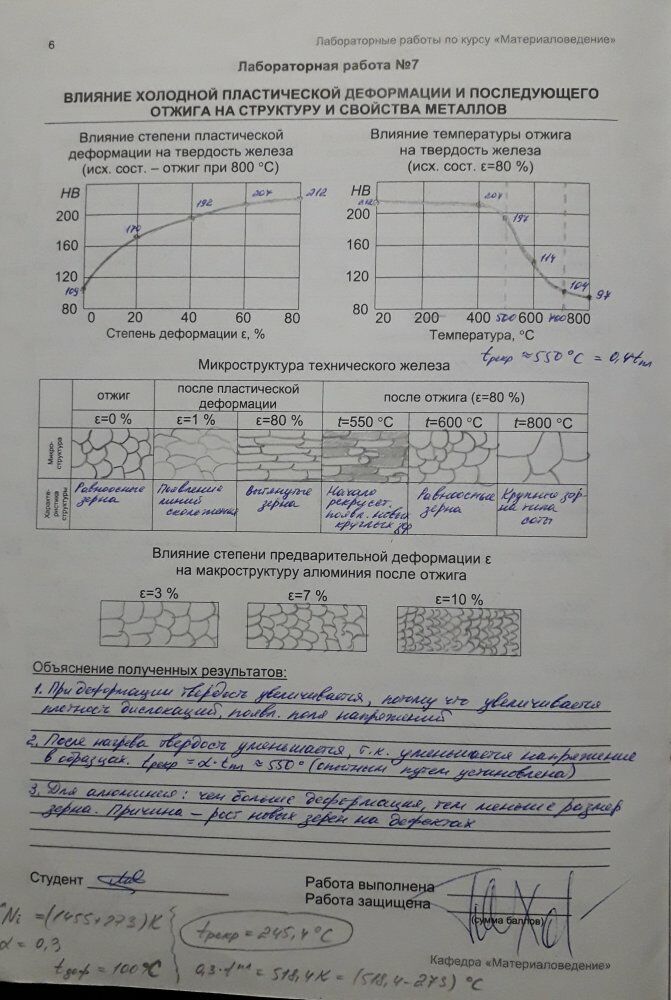 6
Лабораторные работы по курсу «Материаловедение»
Лабораторная работа №7
ВЛИЯНИЕ ХОЛОДНОЙ ПЛАСТИЧЕСКОЙ ДЕФОРМАЦИИ И ПОСЛЕДУЮЩЕГО
ОТЖИГА НА СТРУКТУРУ И СВОЙСТВА МЕТАЛЛОВ
Влияние степени пластической
деформации на твердость железа
(исх. сост. – отжиг при 800 °С)
HB
200
160
120
80
109
170
192
204
212
0 20 40 60 80
Степень деформации ε, %
Влияние температуры отжига
на твердость железа
(исх. сост. ε=80 %)
HB
200
160
120
80
212
204
197
114
104
97
20 200 400 500 600 700 800
Температура, °С
tрекр ≈ 550 °C = 0,4tпл
Микроструктура технического железа
отжиг после пластической деформации после отжига (ε=80 %)
ε=0 % ε=1 % ε=80 % t=550 °С t=600 °С t=800 °С
Микро-
структура
Характе-
ристика
структуры
Равноосные
зерна
Появление
линий
скольжения
Вытянутые
зерна
Начало
рекрист.
появл. новых
круглых
Равноосные
зерна
Крупные зер-
на типа
соты
Влияние степени предварительной деформации ε
на макроструктуру алюминия после отжига
ε=3 % ε=7 % ε=10 %
Объяснение полученных результатов:
1. При деформации твердость увеличивается, потому что увеличивается
плотность дислокаций, появл. поля напряжений
2. После нагрева твердость уменьшается, т.к. уменьшается напряжение
в образцах. tрекр = α·tпл ≈ 550° (опытным путем установлена)
3. Для алюминия: чем больше деформация, тем меньше размер
зерна. Причина – рост новых зерен на дефектах
Студент
Работа выполнена
Работа защищена
(сумма баллов)
Ni = (1455+273)K
α = 0,3
tдеф = 100°C
tрекр = 245,4 °C
0,3·tпл = 518,4K = (518,4–273) °C
Кафедра «Материаловедение»